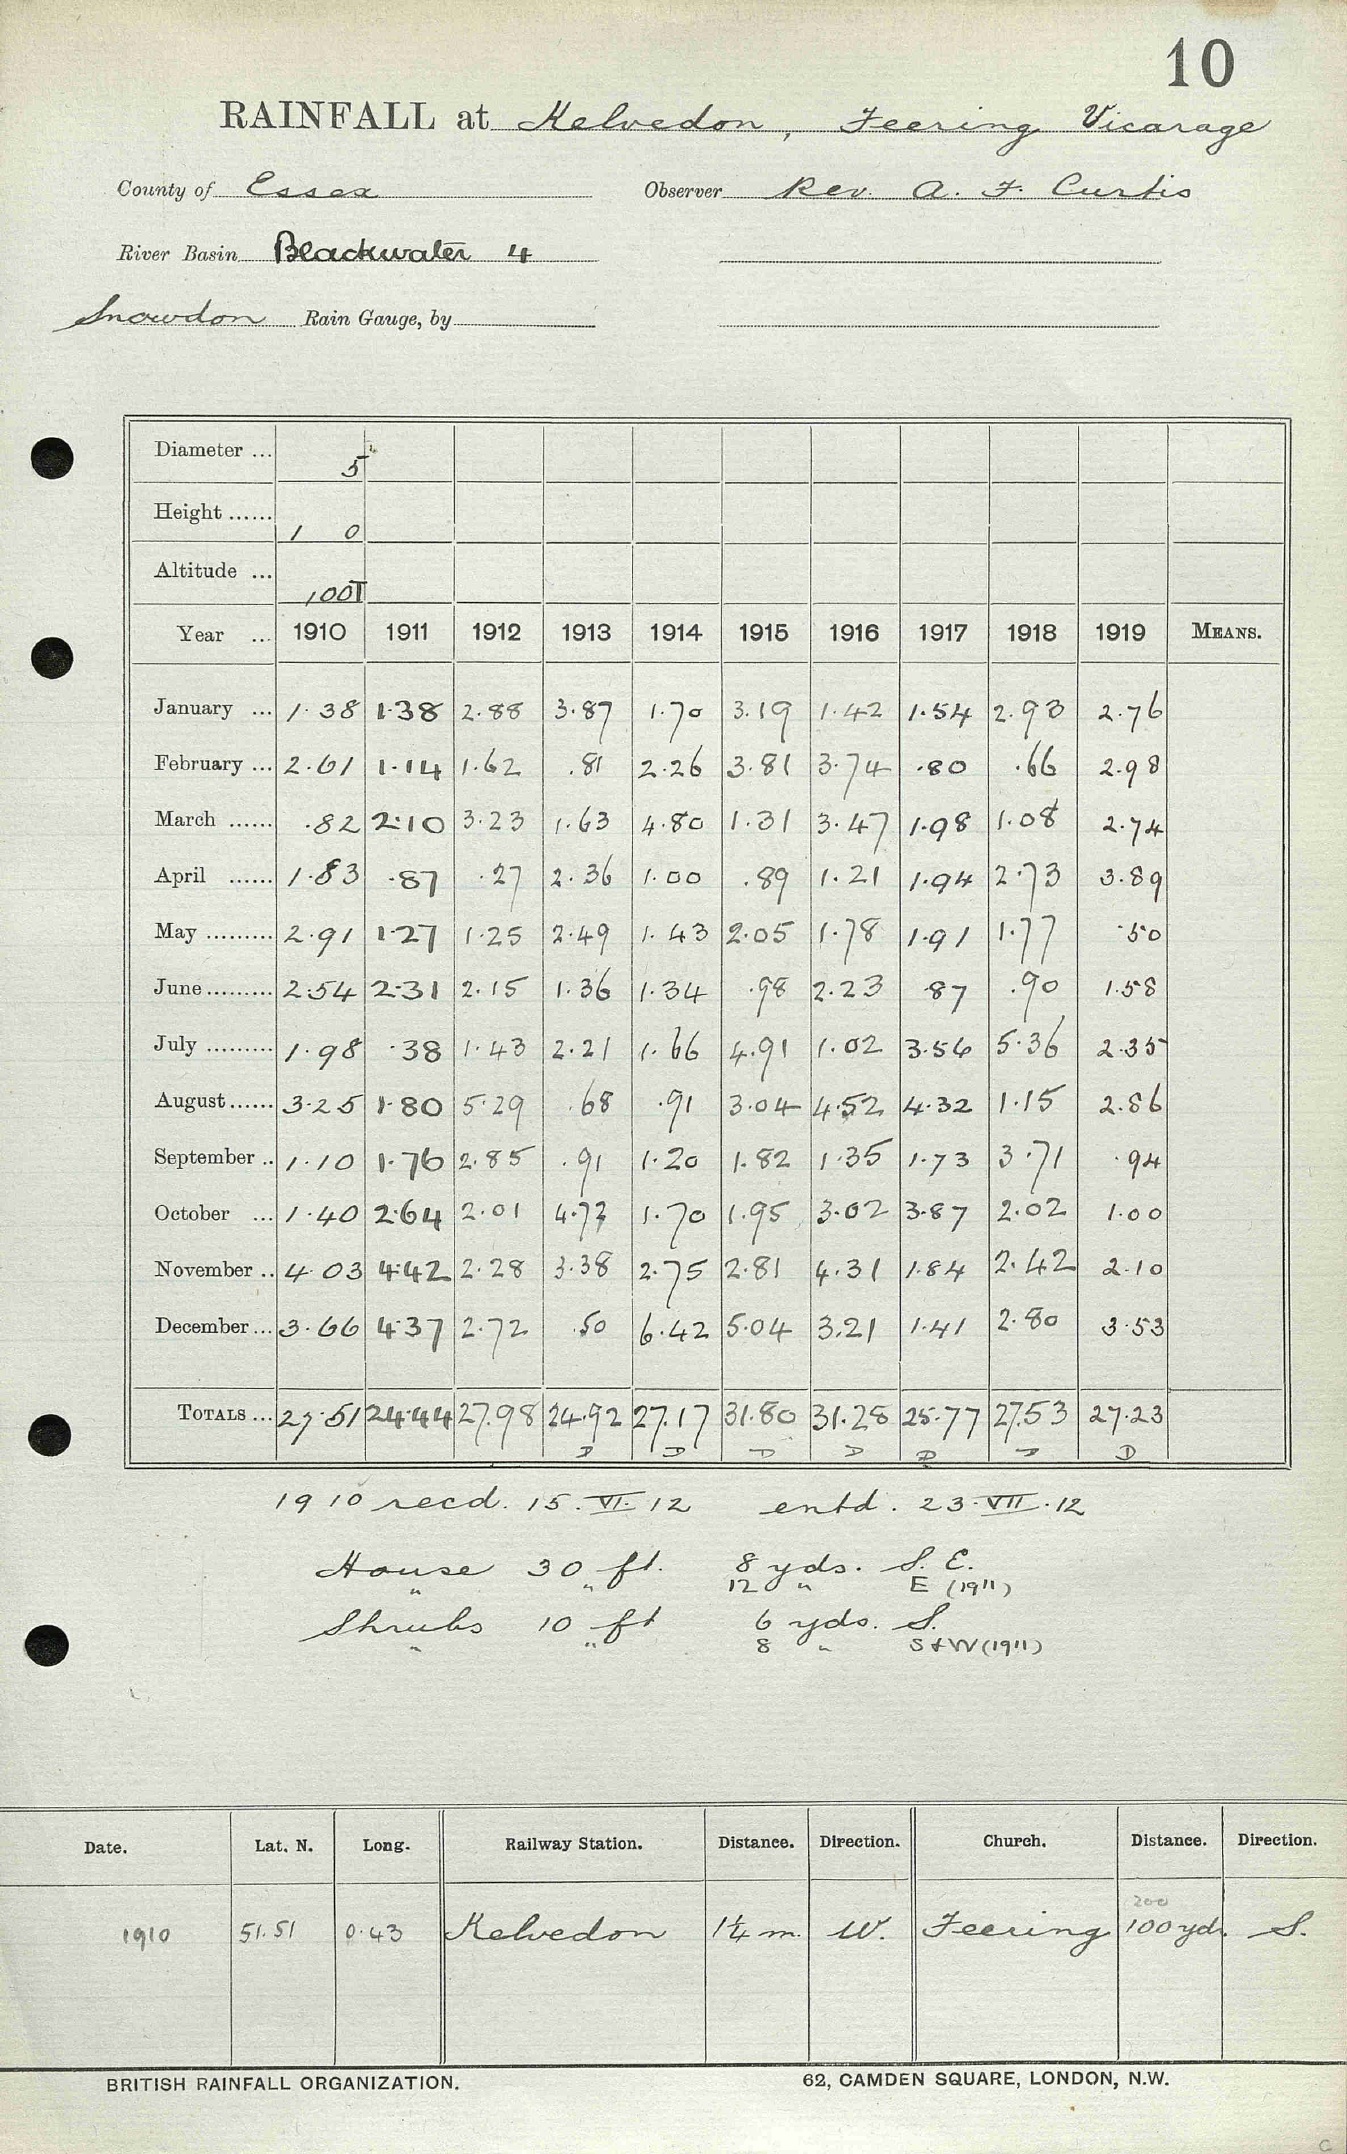 10
RAINFALL at Kelvedon, Feering Vicarage
County of Essex Observer Rev. A. F. Curtis
River Basin Blackwater 4
Snowdon Rain Gauge, by
Diameter ... 5
Height ...... 1 0
Altitude ... 100T
Year ... 1910 1911 1912 1913 1914 1915 1916 1917 1918 1919 MEANS.
January ... 1.38 1.38 2.88 3.87 1.70 3.19 1.42 1.54 2.93 2.76
February ... 2.61 1.14 1.62 .81 2.26 3.81 3.74 .80 .66 2.98
March ...... .82 2.10 3.23 1.63 4.80 1.31 3.47 1.98 1.08 2.74
April ...... 1.83 .87 .27 2.36 1.00 .89 1.21 1.94 2.73 3.89
May ......... 2.91 1.27 1.25 2.49 1.43 2.05 1.78 1.91 1.77 .50
June ......... 2.54 2.31 2.15 1.36 1.34 .98 2.23 .87 .90 1.58
July ......... 1.98 .38 1.43 2.21 1.66 4.91 1.02 3.56 5.36 2.35
August ...... 3.25 1.80 5.29 .68 .91 3.04 4.52 4.32 1.15 2.86
September .. 1.10 1.76 2.85 .91 1.20 1.82 1.35 1.73 3.71 .94
October ... 1.40 2.64 2.01 4.72 1.70 1.95 3.02 3.87 2.02 1.00
November .. 4.03 4.42 2.28 3.38 2.75 2.81 4.31 1.84 2.42 2.10
December ... 3.66 4.37 2.72 .50 6.42 5.04 3.21 1.41 2.80 3.53
TOTALS ... 27.51 24.44 27.98 24.92 27.17 31.80 31.28 25.77 27.53 27.23
D D D D D D D
1910 recd. 15.VI.12 entd. 23.VII.12
House 30 ft. 8 yds. S.E.
" " 12 " E (1911)
Shrubs 10 ft 6 yds. S.
" " 8 " S & W (1911)
Date. Lat. N. Long. Railway Station. Distance. Direction. Church. Distance. Direction.
200
1910 51.51 0.43 Kelvedon 1¼ m. W. Feering 100 yds. S.
BRITISH RAINFALL ORGANIZATION. 62, CAMDEN SQUARE, LONDON, N.W.
C